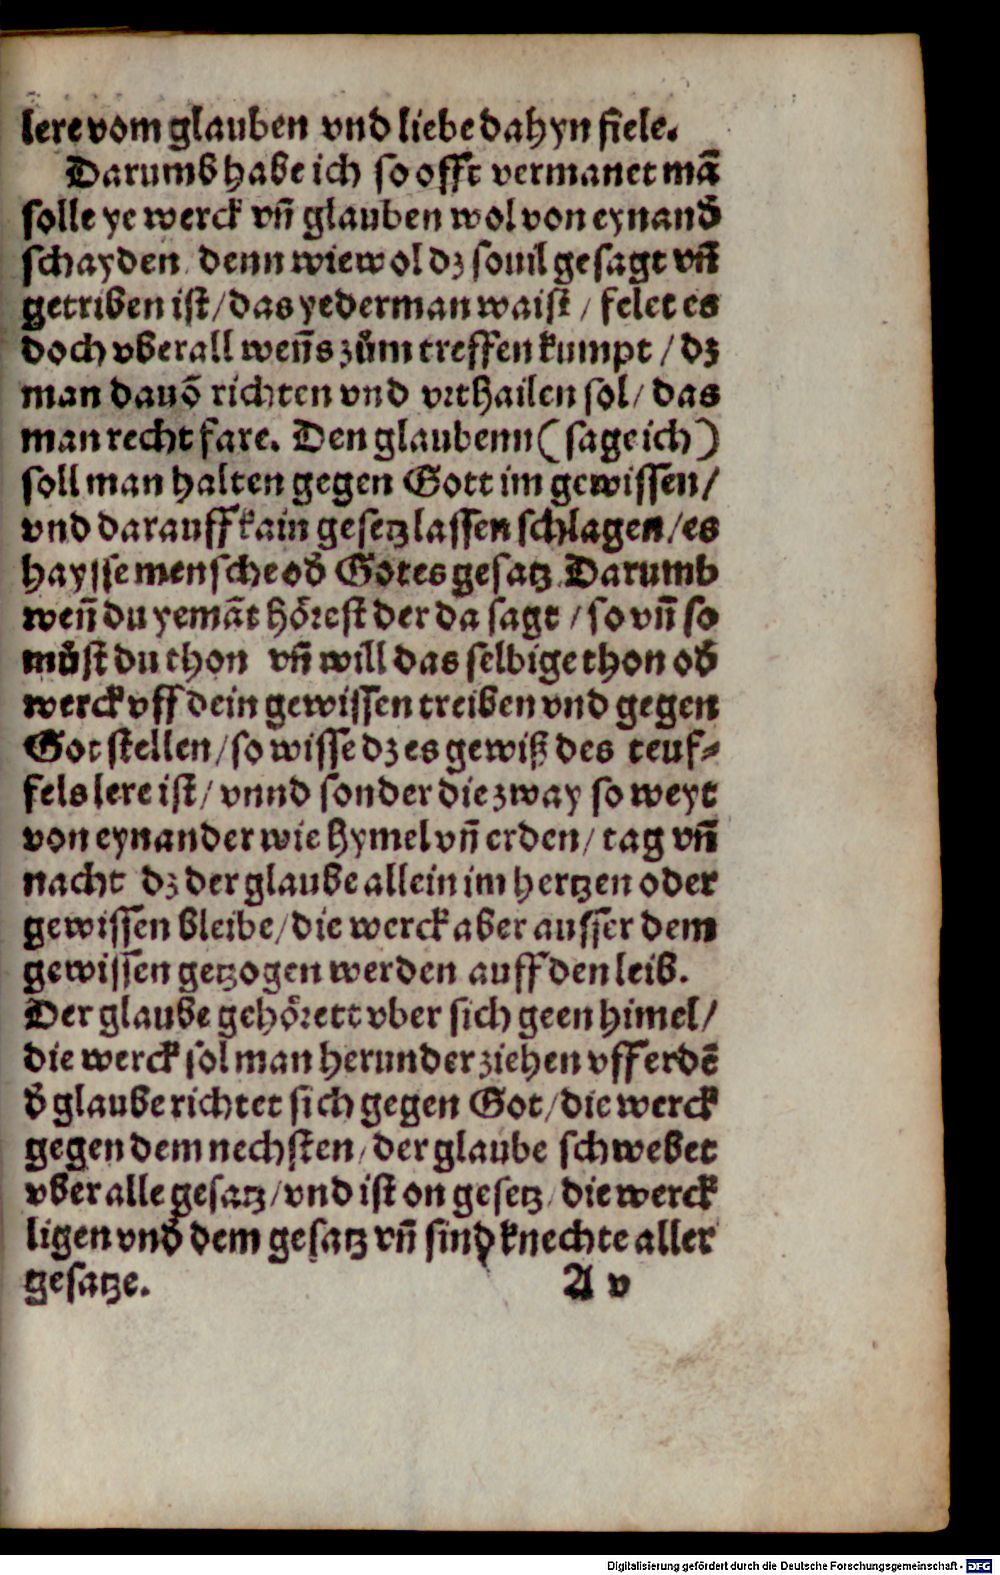 lere vom glauben vnd liebe dahyn fiele.
Darumb habe ich so offt vermanet mā
solle ye werck vn̄ glauben wol von eynand̕
schayden. denn wiewol dz souil gesagt vn̄
getriben ist/ das yederman waist / felet es
doch vberall wen̄s zům treffen kumpt / dz
man dauō richten vnd vrthailen sol/ das
man recht fare. Den glaubenn (sage ich)
soll man halten gegen Gott im gewissen/
vnd darauff kain gesetz lassen schlagen/ es
haysse mensche od̕ Gotes gesatz. Darumb
wen̄ du yemāt hörest der da sagt / so vn̄ so
můst du thon vn̄ will das selbige thon od̕
werck vff dein gewissen treiben vnd gegen
Got stellen/ so wisse dz es gewiß des teuf-
fels lere ist/ vnnd sonder die zway so weyt
von eynander wie hymel vn̄ erden/ tag vn̄
nacht dz der glaube allein im hertzen oder
gewissen bleibe/ die werck aber ausser dem
gewissen getzogen werden auff den leib.
Der glaube gehörett vber sich geen himel/
die werck sol man herunder ziehen vff erdē
d̕ glaube richtet sich gegen Got/ die werck
gegen dem nechsten/ der glaube schwebet
vber alle gesatz/ vnd ist on gesetz/ die werck
ligen vnd̕ dem gesatz vn̄ sind knechte aller
gesatze. A v
Digitalisierung gefördert durch die Deutsche Forschungsgemeinschaft - DFG